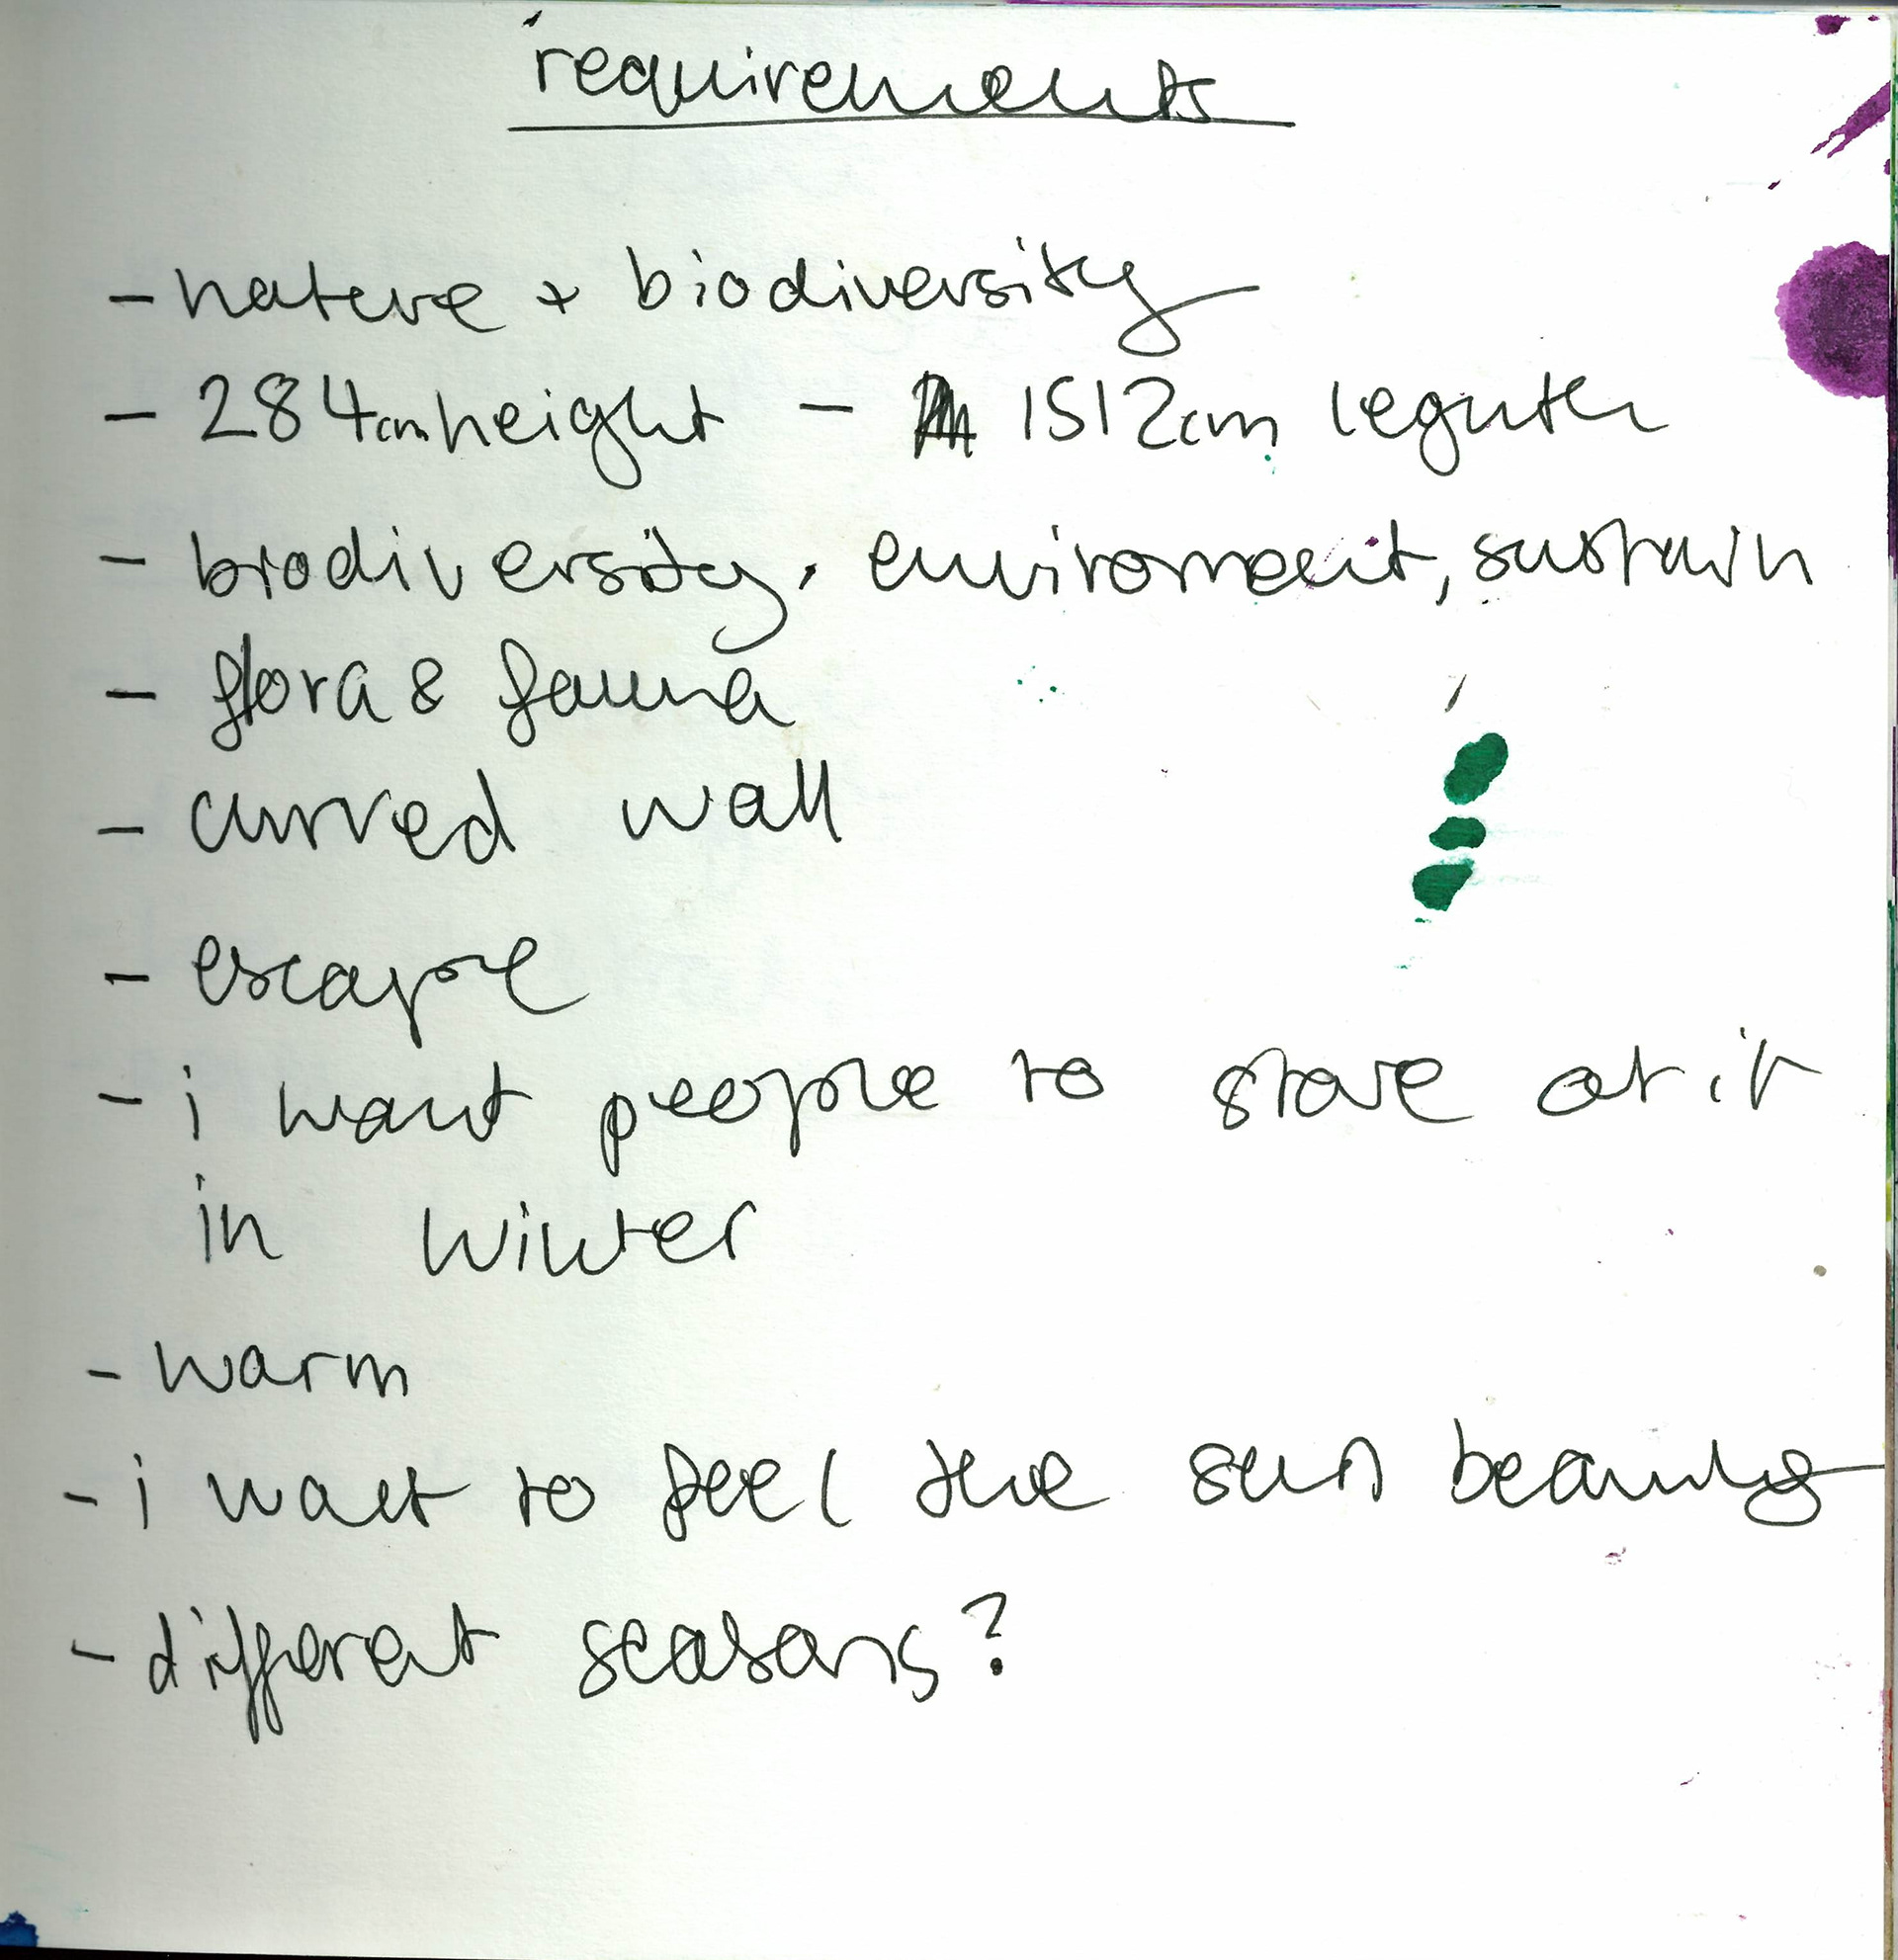 requirements
- nature + biodiversity
- 284cm height - 1512cm leguth
- biodiversity, enviroment, sustain
- flora & fauna
- curved wall
- escape
- i want people to stare at it
in winter
- warm
- i want to feel the sun beaming
- different seasons?